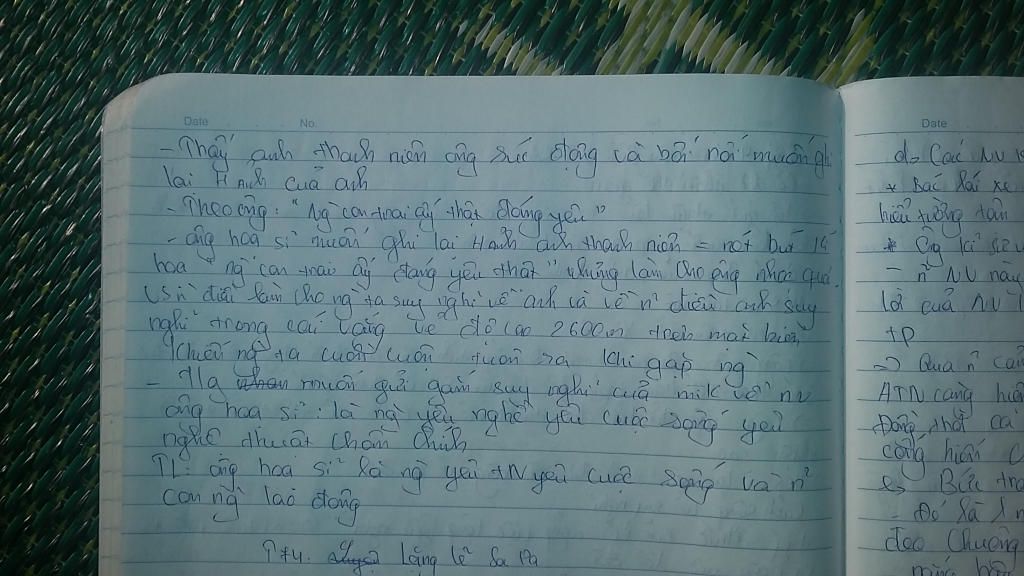 Date No.
- Thấy anh thanh niên ông xúc động và bối rối muốn gh
lại H Ảnh của anh
- Theo ông: "Ng con trai ấy thật đáng yêu"
- ông hoạ sĩ muốn ghi lại H ảnh anh thanh niên = nót bút kí
hoạ "ng con trai ấy đáng yêu thật" nhưng làm cho ông nhọc quá.
điều làm cho ng ta suy nghĩ về anh và về n² điều anh suy
nghĩ trong cái vắng vẻ độ cao 2600m trên mặt biển,
khiến ng ta cuồn cuộn tuôn ra khi gặp ng
- muốn gửi gắm suy nghĩ của mik về nv
ông hoạ sĩ: là ng yêu nghề yêu cuộc sống yêu
nghệ thuật chân chính
TL: ông hoạ sĩ là ng yêu TN yêu cuộc sống và n²
con ng lao động
Lặng lẽ Sa Pa
Date
d, Các NV
* Bác lái xe
* Ông
- n² NV này
là của NV
TP
=> Qua n²
ATN càng hiện
cống hiến
Bức tra
- Đó là